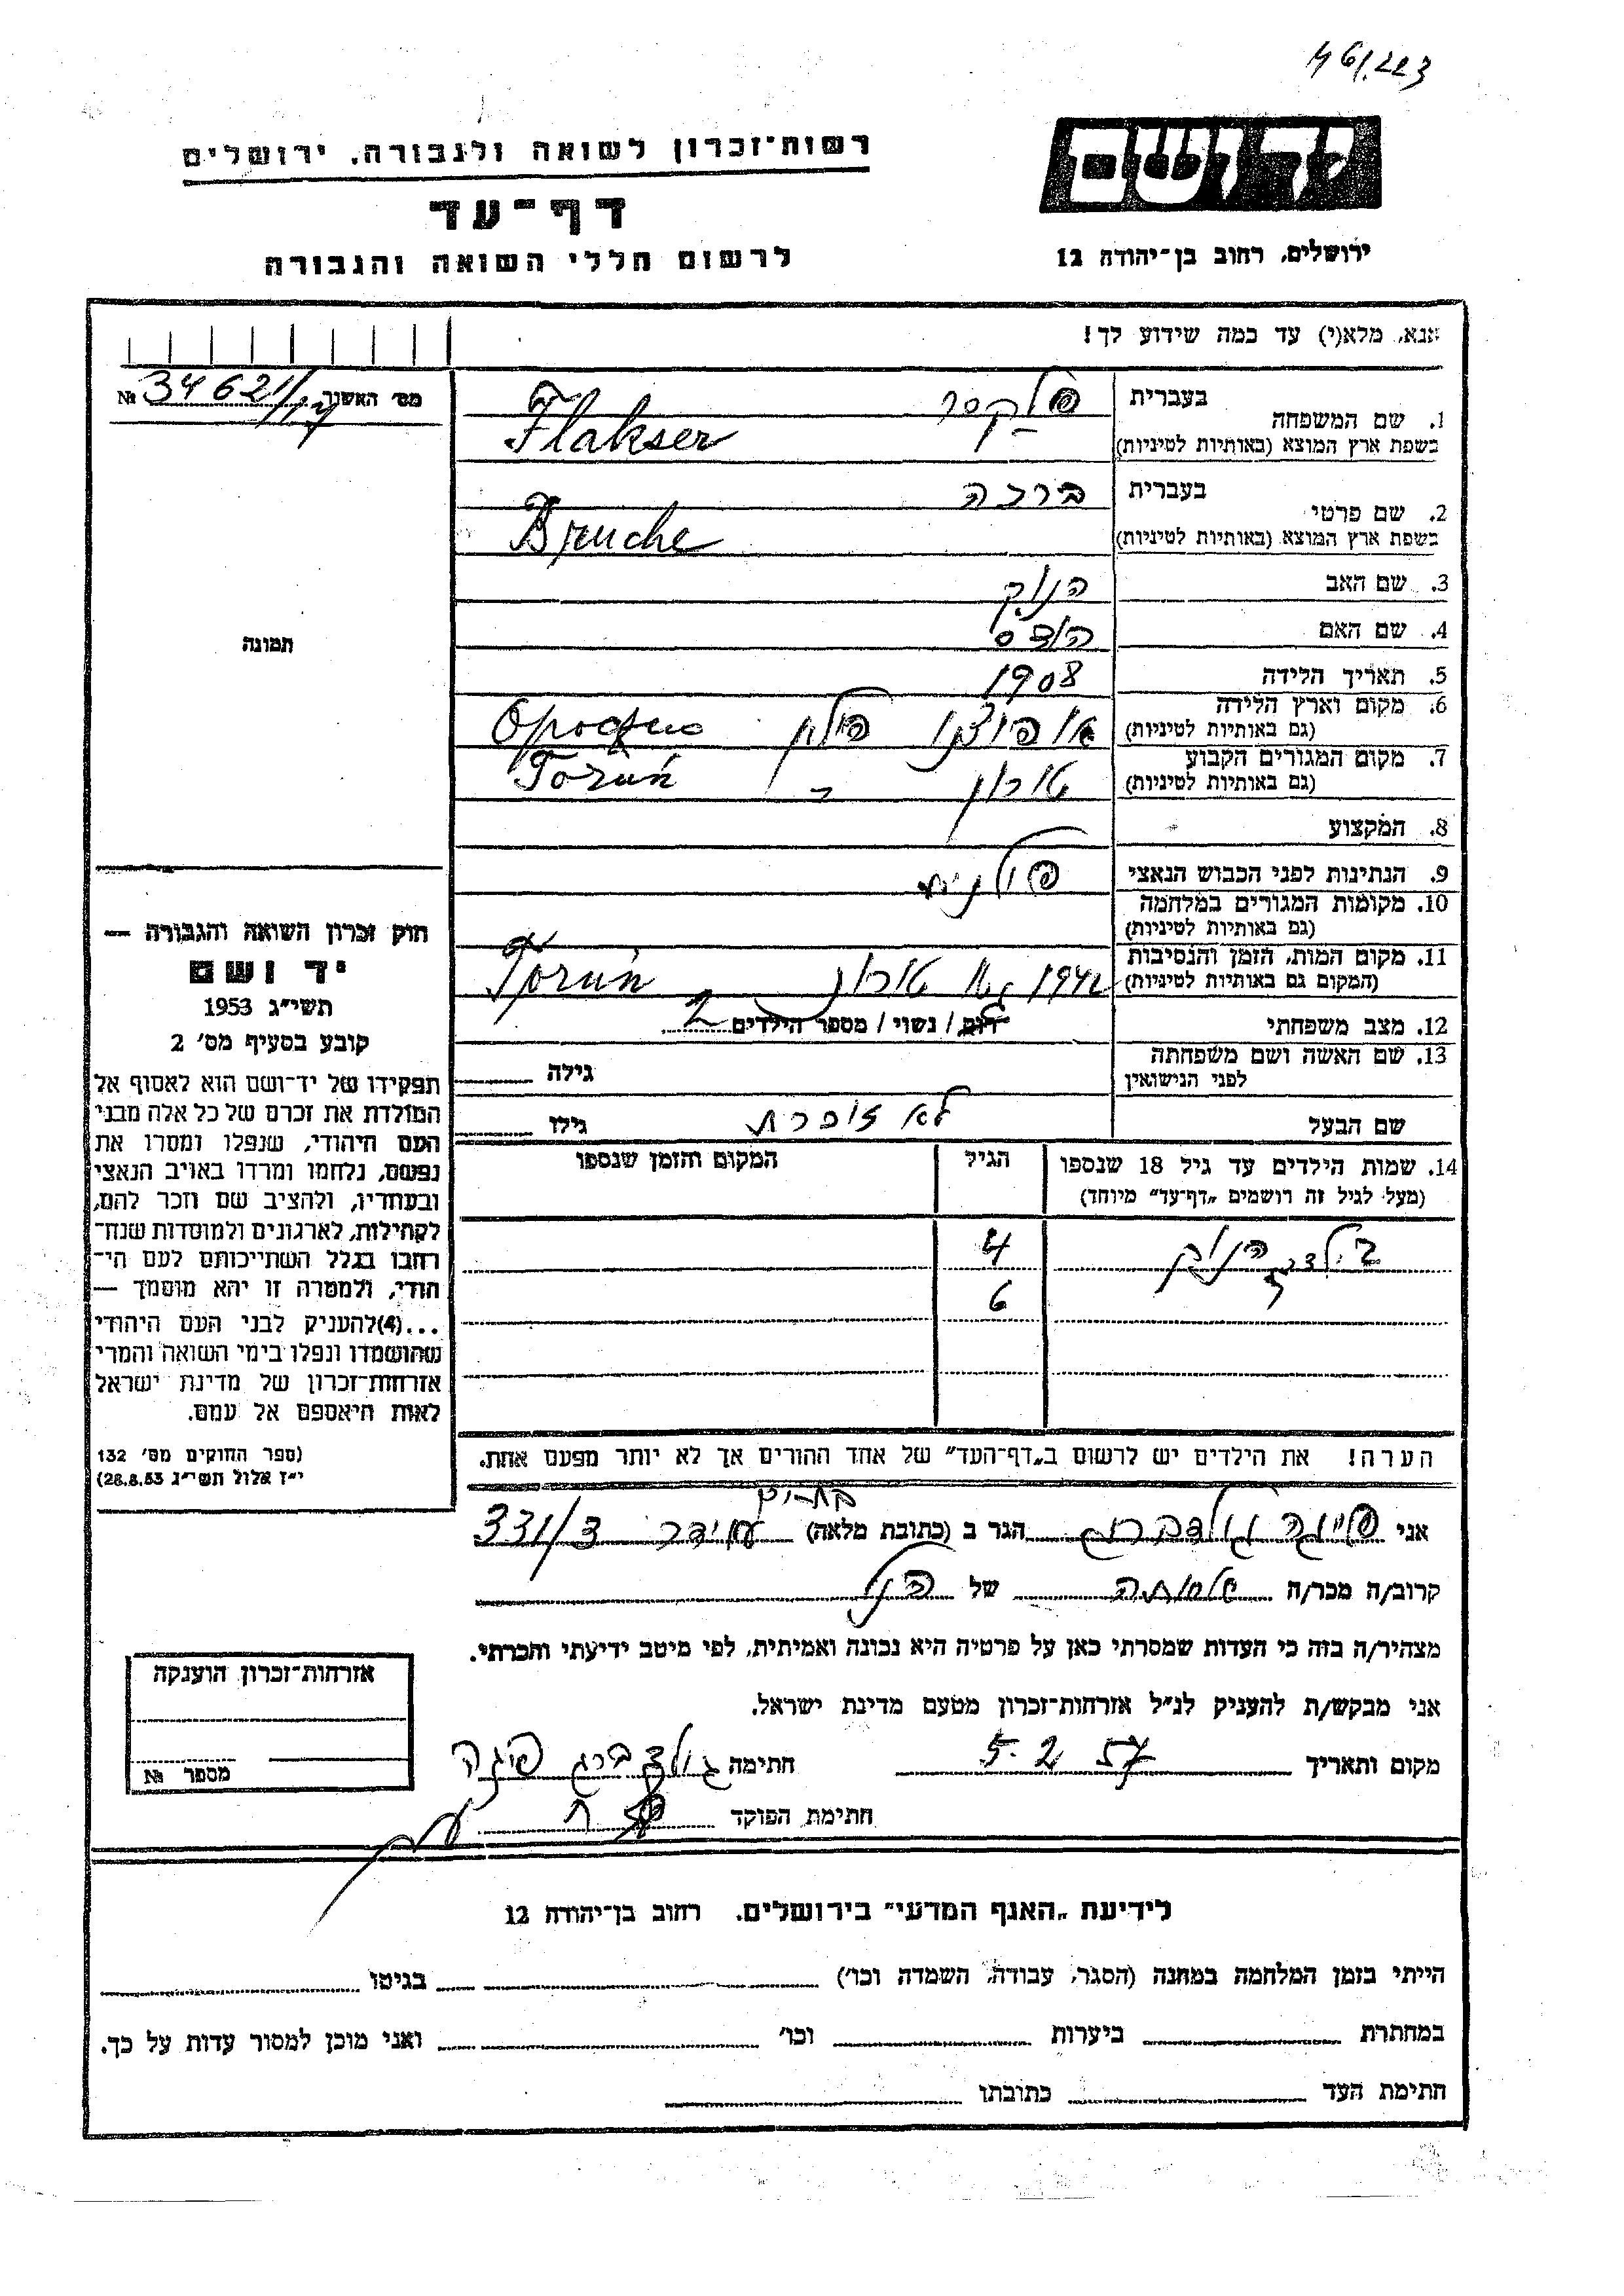 רשות-זכרון לשואה ולגבורה, ירושלים
דף-עד
לרשום חללי השואה והגבורה
יד ושם
ירושלים, רחוב בן-יהודה 12
אנא, מלא(י) עד כמה שידוע לך!
מס' האשנב № 34621/17
תמונה
1. שם המשפחה
בעברית פלקסר
בשפת ארץ המוצא (באותיות לטיניות) Flakser
2. שם פרטי
בעברית ברכה
בשפת ארץ המוצא (באותיות לטיניות) Bruche
3. שם האב
4. שם האם הדס
5. תאריך הלידה 1908
6. מקום וארץ הלידה
(גם באותיות לטיניות) אופוצנו פולין Opoczno
7. מקום המגורים הקבוע
(גם באותיות לטיניות) טורון Toruń
8. המקצוע
9. הנתינות לפני הכבוש הנאצי פולנית
10. מקומות המגורים במלחמה
(גם באותיות לטיניות)
11. מקום המות, הזמן והנסיבות
(המקום גם באותיות לטיניות) 1942 טורון Toruń
12. מצב משפחתי רווק / נשוי / מספר הילדים 2
13. שם האשה ושם משפחתה
לפני הנישואין גילה
שם הבעל לא זוכרת גילו
14. שמות הילדים עד גיל 18 שנספו
(מעל לגיל זה רושמים „דף-עד" מיוחד)
הגיל
המקום והזמן שנספו
4
6
הערה! את הילדים יש לרשום ב„דף-העד" של אחד ההורים אך לא יותר מפעם אחת.
חוק זכרון השואה והגבורה —
יד ושם
תשי"ג 1953
קובע בסעיף מס' 2
תפקידו של יד-ושם הוא לאסוף אל
המולדת את זכרם של כל אלה מבני
העם היהודי, שנפלו ומסרו את
נפשם, נלחמו ומרדו באויב הנאצי
ובעוזריו, ולהציב שם וזכר להם,
לקהילות, לארגונים ולמוסדות שנח-
רחבו בגלל השתייכותם לעם הי-
הודי, ולמטרה זו יהא מוסמך —
...(4)להעניק לבני העם היהודי
שהושמדו ונפלו בימי השואה והמרי
אזרחות-זכרון של מדינת ישראל
לאות היאספם אל עמם.
(ספר החוקים מס' 132
י"ז אלול תשי"ג 28.8.53)
אני פייגה גולדברג הגר ב (כתובת מלאה) 331/3
קרוב/ה מכר/ה של הנ"ל
מצהיר/ה בזה כי העדות שמסרתי כאן על פרטיה היא נכונה ואמיתית, לפי מיטב ידיעתי והכרתי.
אני מבקש/ת להעניק לנ"ל אזרחות-זכרון מטעם מדינת ישראל.
מקום ותאריך 5.2.57 חתימה גולדברג פיגה
חתימת הפוקד
אזרחות-זכרון הוענקה
מספר №
לידיעת „האגף המדעי" בירושלים, רחוב בן-יהודה 12
הייתי בזמן המלחמה במחנה (הסגר, עבודה, השמדה וכו') בגיטו
במחתרת ביערות וכו' ואני מוכן למסור עדות על כך.
חתימת העד כתובתו